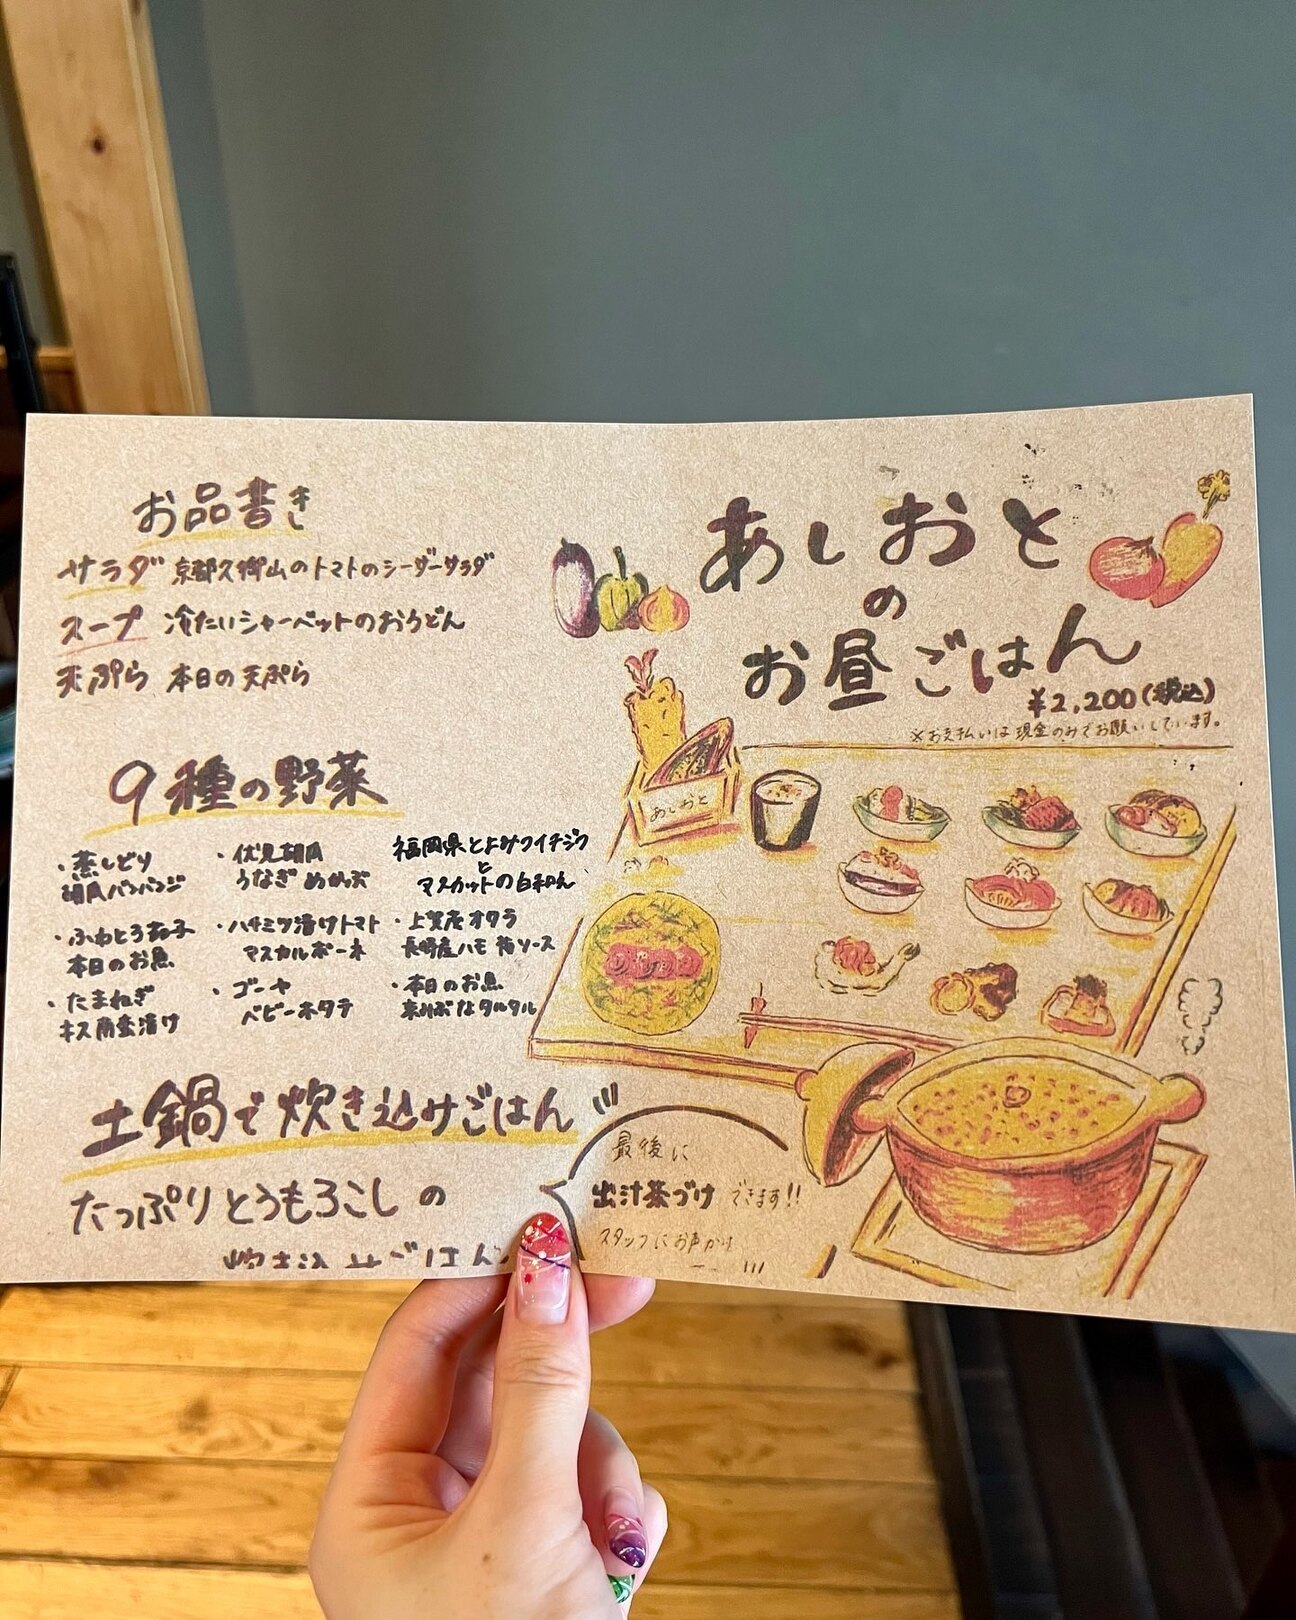 お品書き
サラダ 京都久御山のトマトのシーザーサラダ
スープ 冷たいシャーベットのおうどん
天ぷら 本日の天ぷら
9種の野菜
・蒸しどり
胡瓜バンバンジ
・伏見胡瓜
うなぎ めかぶ
福岡県とよみつイチジク
と
マスカットの白和え
・ふわとろ茄子
本日のお魚
・ハチミツ漬けトマト
マスカルポーネ
・上賀茂オクラ
長崎産ハモ 梅ソース
・たまねぎ
キス南蛮漬け
・ゴーヤ
ベビーホタテ
・本日のお魚
タルタル
土鍋で炊き込みごはん
たっぷりとうもろこしの
炊き込みごはん
あしおと
の
お昼ごはん
¥2,200(税込)
※お支払いは現金のみでお願いしています。
あしおと
最後に
出汁茶づけ できます!!
スタッフにお声がけ